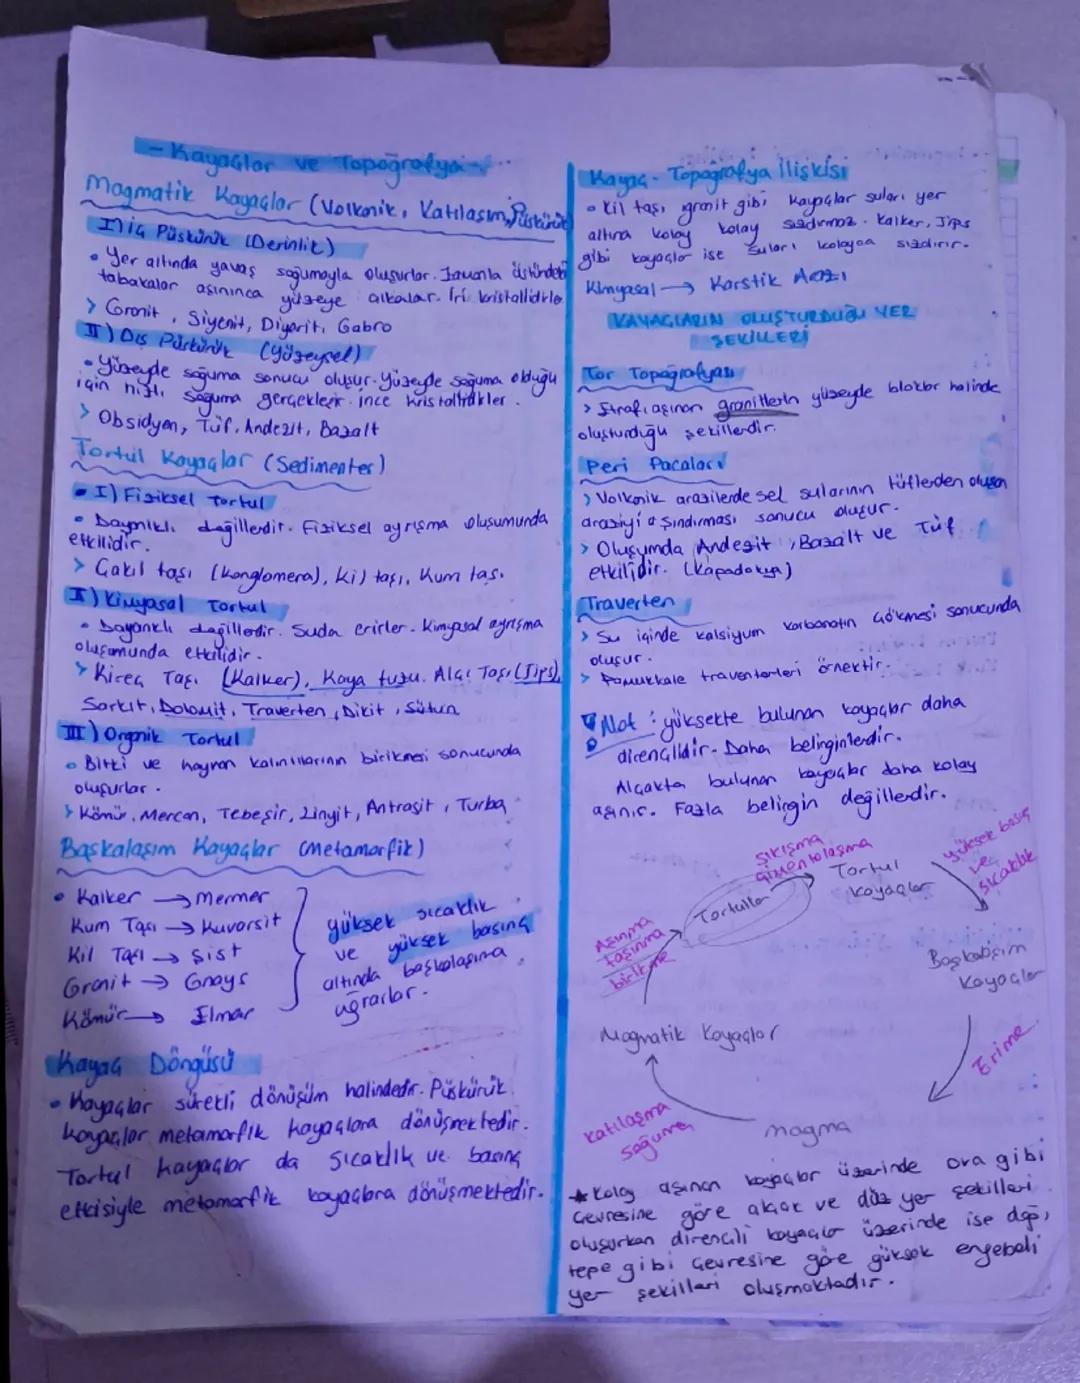 - Kayaçlar ve Topoğrafya -
Magmatik Kayaçlar (Volkanik, Katılaşım, Püskürük)
I) İç Püskürük (Derinlik)
• Yer altında yavaş soğumayla oluşurlar. Zamanla üstündeki
tabakalar aşınınca yüzeye çıkarlar. İri kristallidirler
> Granit, Siyenit, Diyorit, Gabro
II) Dış Püskürük (Yüzeysel)
• Yüzeyde soğuma sonucu oluşur. Yüzeyde soğuma olduğu
için hızlı soğuma gerçekleşir. ince kristallidirler.
> Obsidyen, Tüf, Andezit, Bazalt
Tortul Kayaçlar (Sedimenter)
• I) Fiziksel Tortul
• Dayanıklı değillerdir. Fiziksel ayrışma oluşumunda
etkilidir.
> Çakıl taşı (konglomera), kil taşı, kum taşı
II) Kimyasal Tortul
• Dayanıklı değillerdir. Suda erirler. Kimyasal ayrışma
oluşumunda etkilidir.
> Kireç Taşı (Kalker), Kaya tuzu, Alçı Taşı (Jips),
Sarkıt, Dolomit, Traverten, Dikit, Sütun
III) Organik Tortul
• Bitki ve hayvan kalıntılarının birikmesi sonucunda
oluşurlar.
> Kömür, Mercan, Tebeşir, Linyit, Antrasit, Turba
Başkalaşım Kayaçlar (Metamorfik)
• Kalker → Mermer
Kum Taşı → Kuvarsit
Kil Taşı → Şist
Granit → Gnays
Kömür → Elmas
yüksek sıcaklık
ve yüksek basınç
altında başkalaşıma
uğrarlar.
Kayaç Döngüsü
• Kayaçlar sürekli dönüşüm halindedir. Püskürük
kayaçlar metamorfik kayaçlara dönüşmektedir.
Tortul kayaçlar da sıcaklık ve basınç
etkisiyle metamorfik kayaçlara dönüşmektedir.
Kayaç - Topoğrafya İlişkisi
• Kil taşı, granit gibi kayaçlar suları yer
altına kolay kolay sızdırmaz. Kalker, Jips
gibi kayaçlar ise suları kolayca sızdırır.
Kimyasal → Karstik Arazi
KAYAÇLARIN OLUŞTURDUĞU YER
ŞEKİLLERİ
Tor Topoğrafyası
> Etrafı aşınan granitlerin yüzeyde bloklar halinde
oluşturduğu şekillerdir.
Peri Bacaları
> Volkanik arazilerde sel sularının tüflerden oluşan
araziyi aşındırması sonucu oluşur.
> Oluşumda Andezit, Bazalt ve Tüf
etkilidir. (Kapadokya)
Traverten
> Su içinde kalsiyum karbonatın çökmesi sonucunda
oluşur.
> Pamukkale travertenleri örnektir.
Not: yüksekte bulunan kayaçlar daha
dirençlidir. Daha belirginlerdir.
Alçakta bulunan kayaçlar daha kolay
aşınır. Fazla belirgin değillerdir.
sıkışma
çimentolaşma
Tortul
kayaçlar
yüksek basınç
ve
sıcaklık
Tortullar
Aşınma
taşınma
birikme
Başkalaşım
Kayaçlar
Magmatik Kayaçlar
Erime
katılaşma
soğuma
magma
★ Kolay aşınan kayaçlar üzerinde ova gibi
çevresine göre alçak ve düz yer şekilleri
oluşurken dirençli kayaçlar üzerinde ise dağ,
tepe gibi çevresine göre yüksek engebeli
yer şekilleri oluşmaktadır.